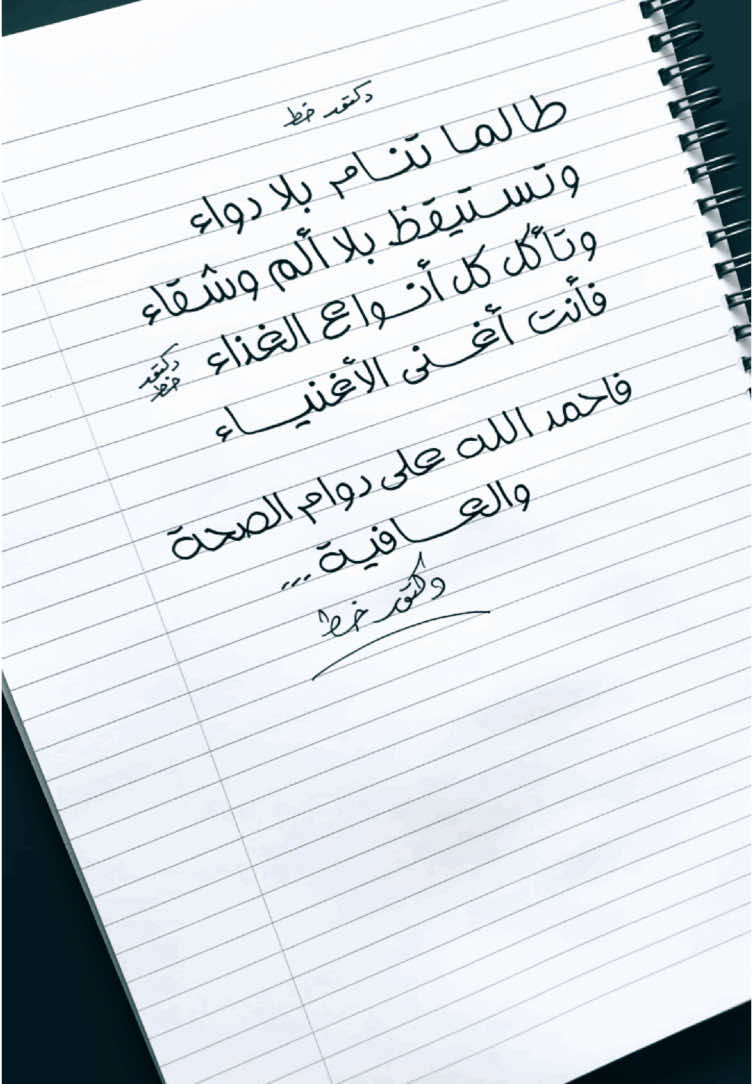 دكتور خط
طالما تنام بلا دواء
وتستيقظ بلا ألم وشقاء
وتأكل كل أنواع الغذاء
دكتور
خط
فأنت أغنى الأغنياء
فاحمد الله على دوام الصحة
والعافية ...
دكتور خط